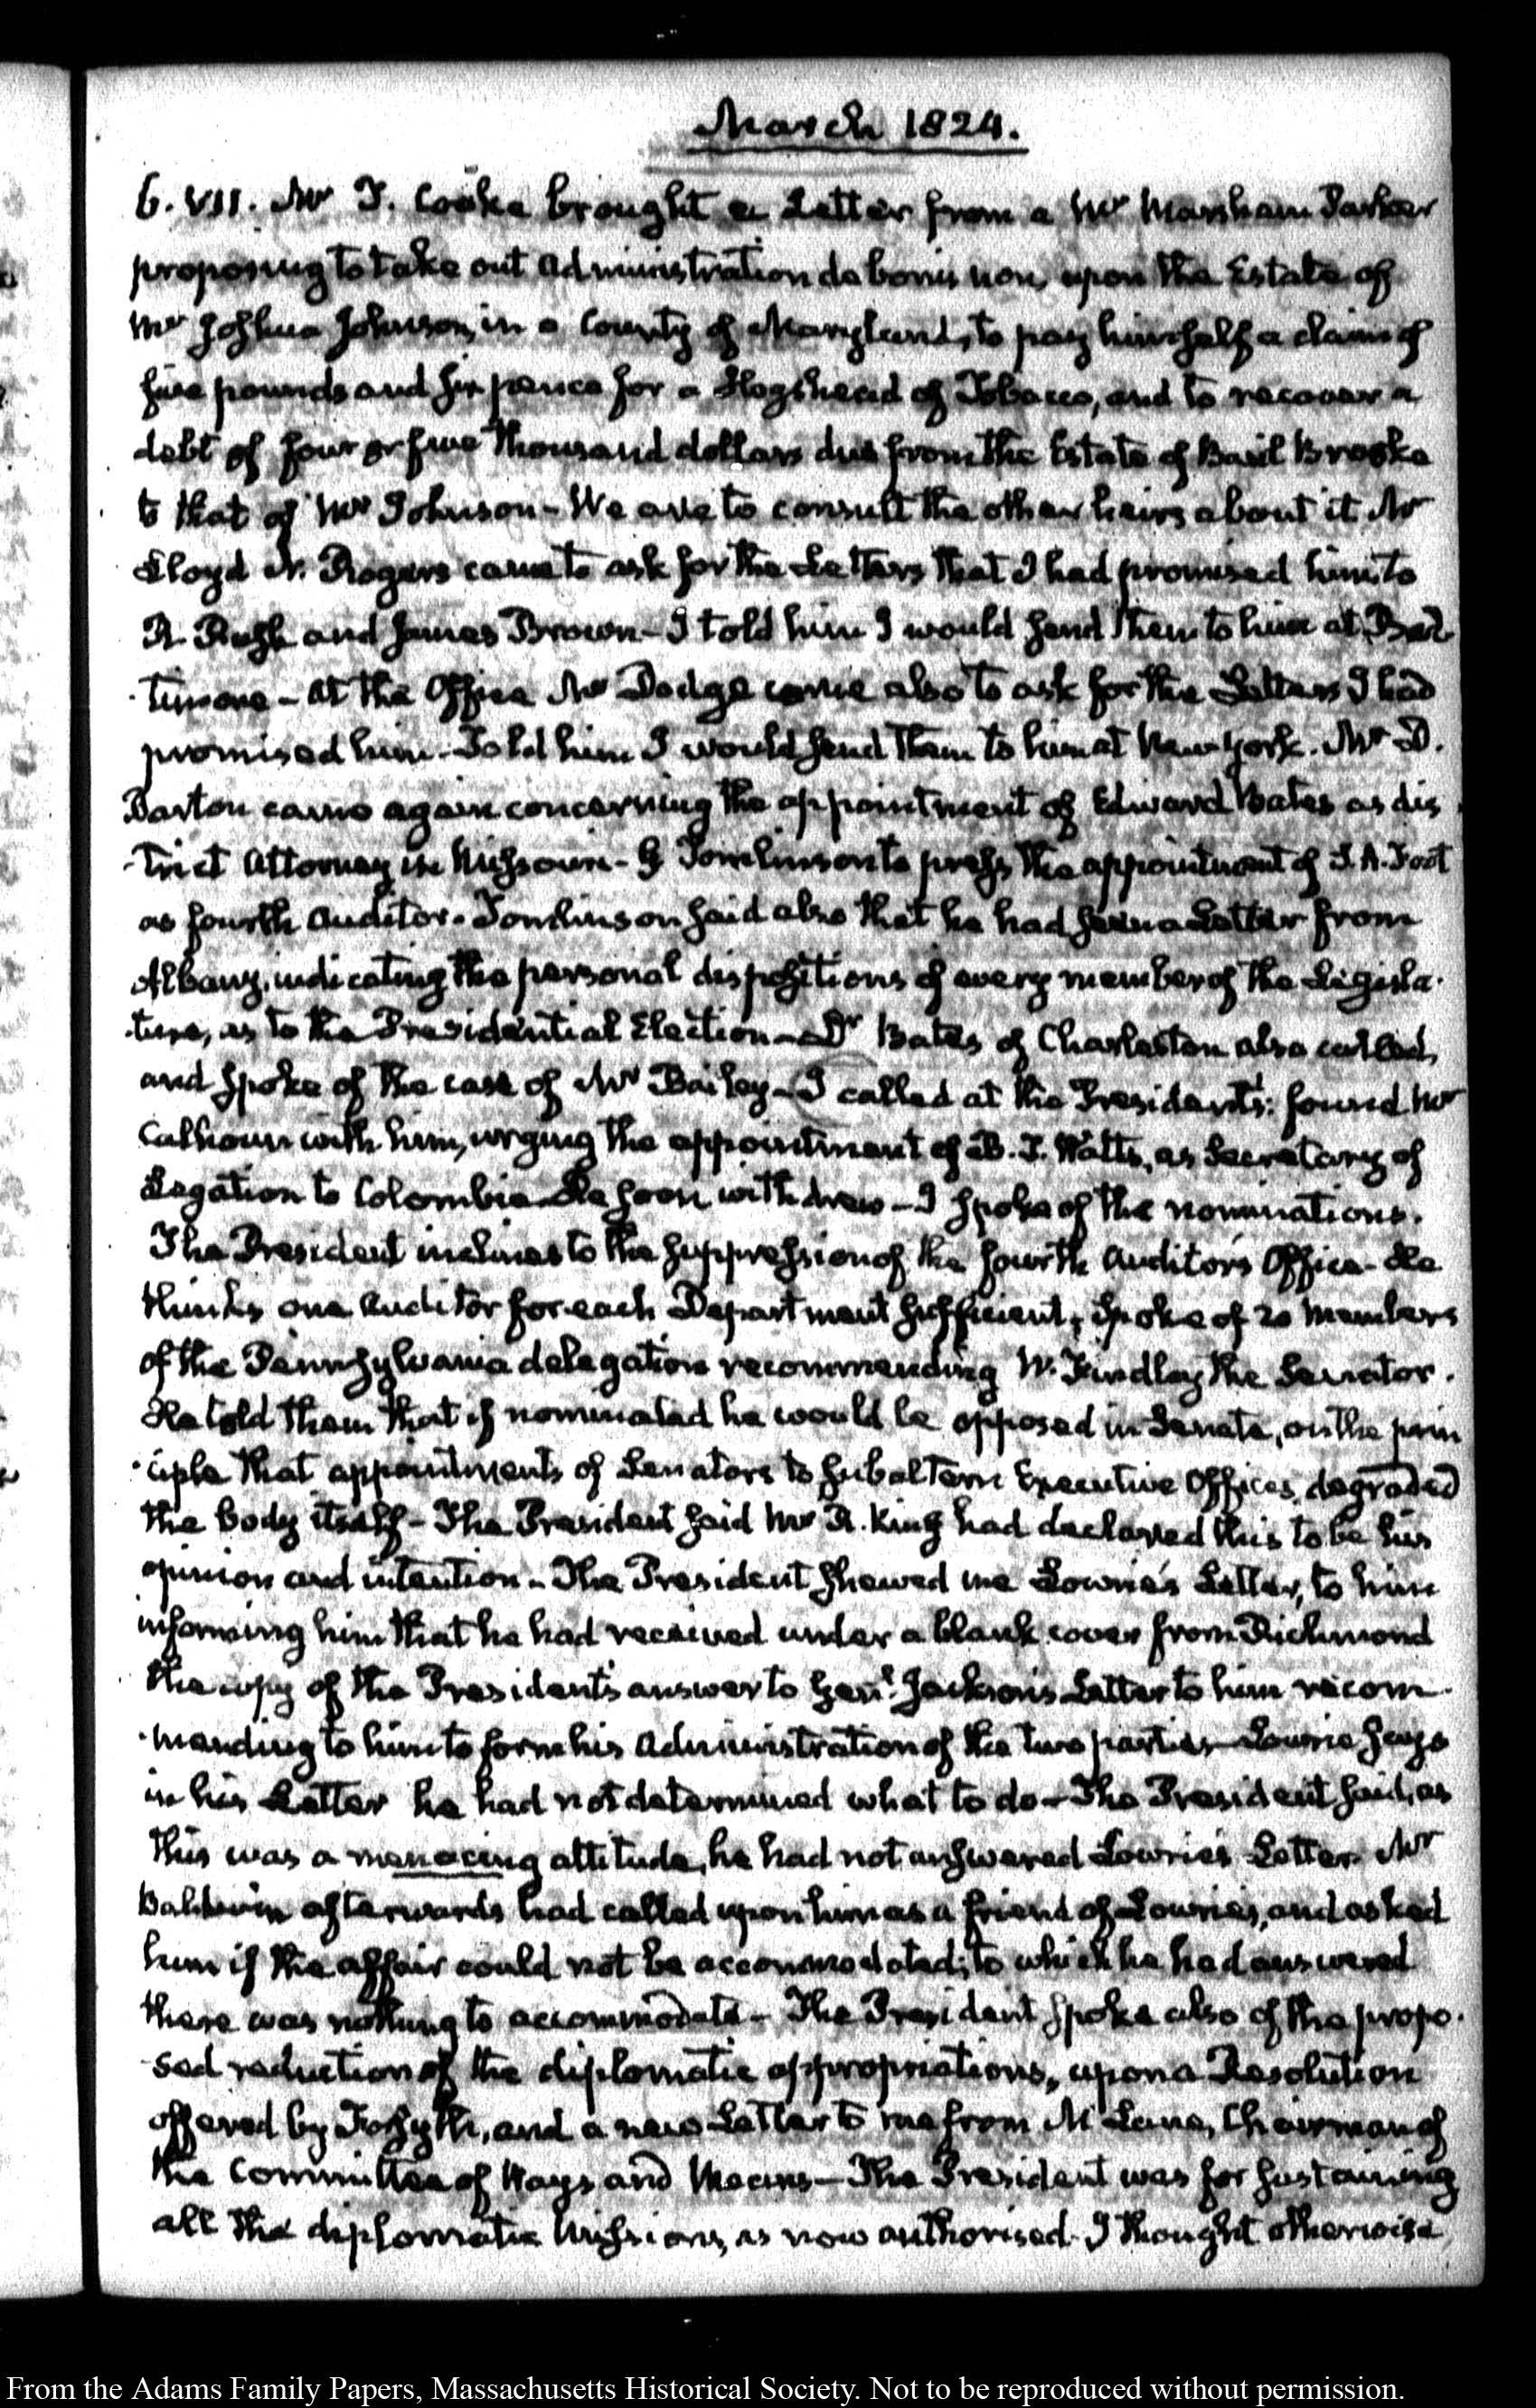 March 1824.
6. VII. Mr T. Cooke brought a Letter from a Mr Marsham Parker
proposing to take out Administration de bonis non, upon the Estate of
Mr Joshua Johnson, in a County of Maryland, to pay himself a claim of
five pounds and six pence for a Hogshead of Tobacco, and to recover a
debt of four or five thousand dollars due from the Estate of Basil Brooke
to that of Mr Johnson – We are to consult the other heirs about it Mr
Lloyd N. Rogers came to ask for the Letters that I had promised him to
R. Rush and James Brown – I told him I would send them to him at Bal-
-timore – At the Office Mr Dodge came also to ask for the Letters I had
promised him – Told him I would send them to him at New-York. Mr D.
Barton came again concerning the appointment of Edward Bates as dis
-trict Attorney in Missouri – G Tomlinson to press the appointment of S. A. Foot
as fourth Auditor. Tomlinson said also that he had seen a Letter from
Albany, indicating the personal dispositions of every member of the Legisla-
-ture, as to the Presidential Election – Dr Bates of Charleston also called,
and spoke of the case of Mr Bailey – I called at the President's: found Mr
Calhoun with him, urging the appointment of B. T. Watts, as Secretary of
Legation to Colombia – He soon withdrew – I spoke of the nominations.
The President inclines to the suppression of the fourth Auditor's Office – He
thinks one Auditor for each Department sufficient, spoke of 20 Members
of the Pennsylvania delegation recommending W. Findlay the Senator.
He told them that if nominated he would be opposed in Senate, on the prin
-ciple that appointments of Senators to subaltern Executive Offices, degraded
the body itself – The President said Mr R. King had declared this to be his
opinion and intention – The President shewed me Lowrie's Letter, to him
informing him that he had received under a blank cover from Richmond
the copy of the President's answer to Genl. Jackson's Letter to him recom-
-mending to him to form his Administration of the two parties – Lowrie says
in his Letter he had not determined what to do – The President said, as
this was a menacing attitude, he had not answered Lowrie's Letter. Mr
Baldwin afterwards had called upon him as a friend of Lowrie's, and asked
him if the affair could not be accommodated; to which he had answered
there was nothing to accommodate – The President spoke also of the propo-
-sed reduction of the diplomatic appropriations, upon a Resolution
offered by Forsyth, and a new Letter to me from McLane, Chairman of
the Committee of Ways and Means – The President was for sustaining
all the diplomatic Missions, as now authorised – I thought otherwise,
From the Adams Family Papers, Massachusetts Historical Society. Not to be reproduced without permission.